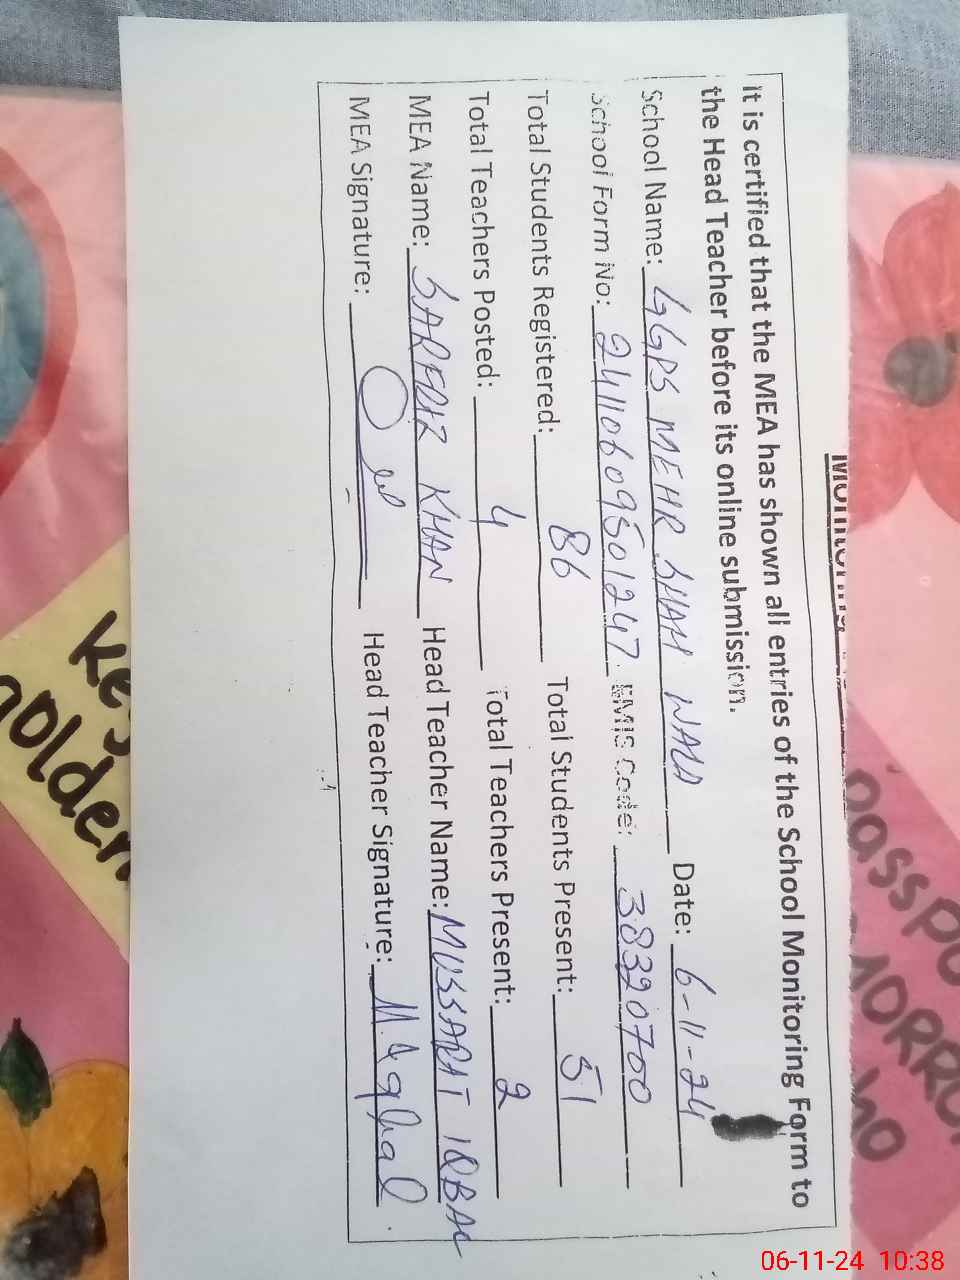 It is certified that the MEA has shown all entries of the School Monitoring Form to
the Head Teacher before its online submission.
School Name: GGPS MEHR SHAH WALA Date: 6-11-24
School Form No: 24110609501247 EMIS Code: 38320700
Total Students Registered: 86 Total Students Present: 51
Total Teachers Posted: 4 Total Teachers Present: 2
MEA Name: SARFRAZ KHAN Head Teacher Name: MUSSARAT IQBAL
MEA Signature: Head Teacher Signature: M. Iqbal
Ke
olden
passpo
MORRO
ho
06-11-24 10:38